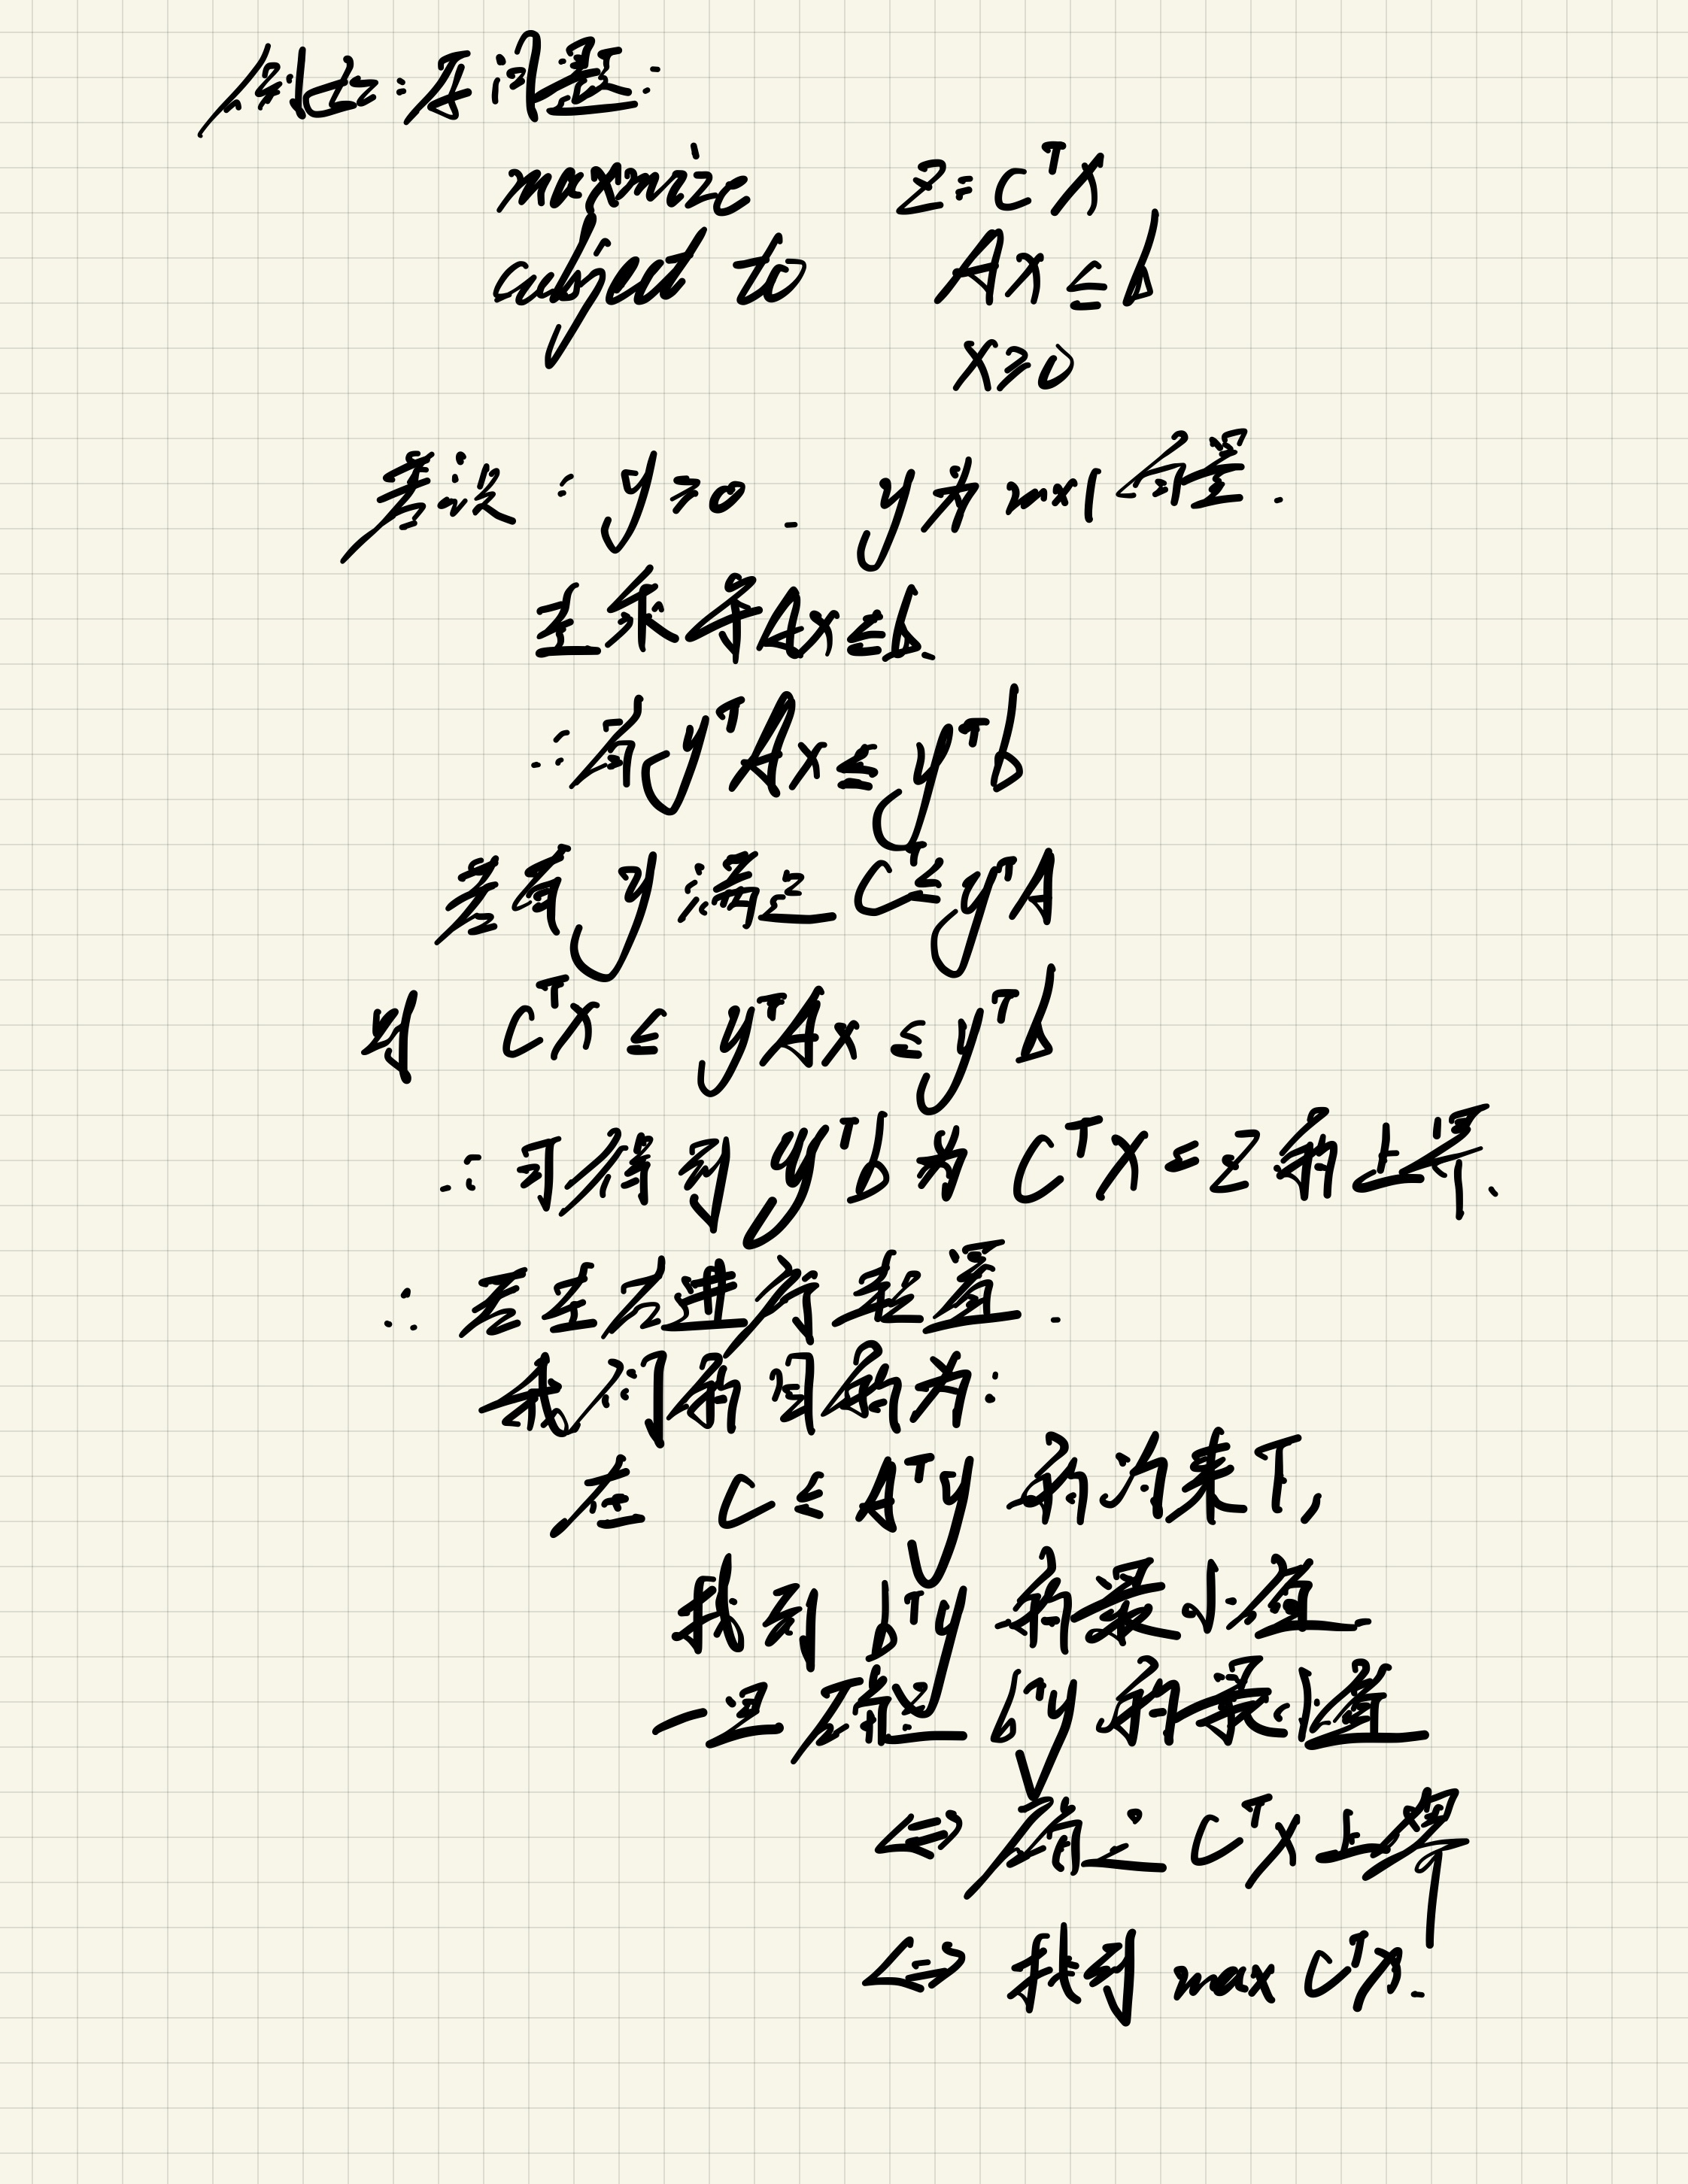 例如:原问题:
maxmize z = C^T X
subject to Ax ≤ b
x ≥ 0
若设: y ≥ 0. y为 m×1 向量.
左乘于Ax≤b.
∴有 y^T Ax ≤ y^T b
若有 y 满足 C^T ≤ y^T A
则 C^T X ≤ y^T Ax ≤ y^T b
∴ 可得到 y^T b 为 C^T X = z 的上界.
∴ 若左右进行转置.
我们的目的为:
在 C ≤ A^T y 的约束下,
找到 b^T y 的最小值.
一旦确定 b^T y 的最小值
⇔ 确定 C^T X 上界
⇔ 找到 max C^T X.